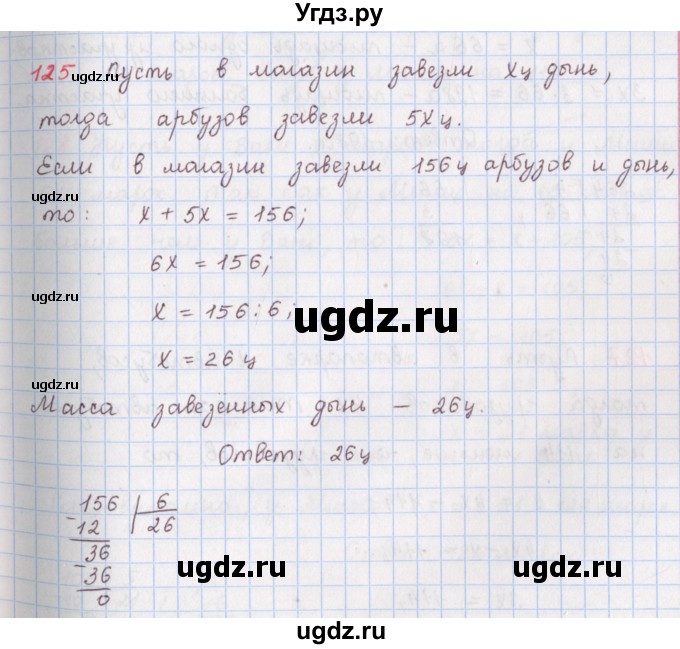 Угдз.ру
125 Пусть в магазин завезли xц дынь,
тогда арбузов завезли 5xц.
Если в магазин завезли 156ц арбузов и дынь,
gdz.ru
то: x + 5x = 156;
6x = 156;
gdz.ru
x = 156 : 6;
ugdz.ru
x = 26 ц
gdz.ru
Масса завезенных дынь – 26ц.
Ответ: 26ц
156 | 6
- 12 | 26
36
- 36
0
ugdz.ru
ugdz.ru
ugdz.ru
ugdz.ru